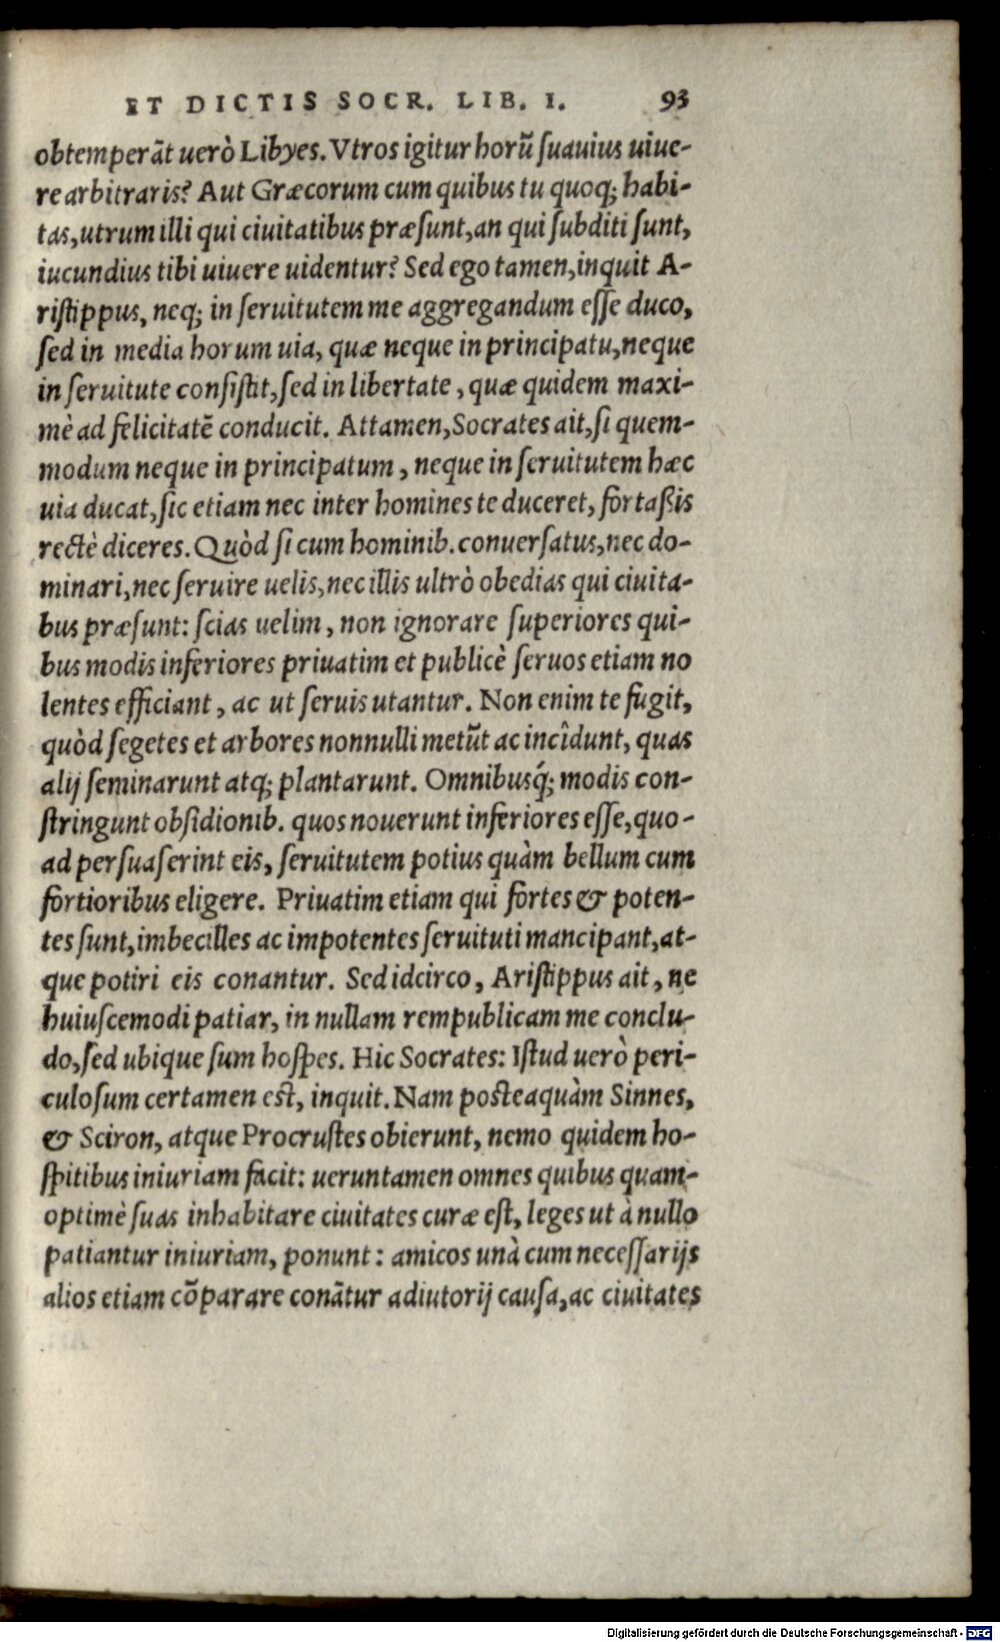 ET DICTIS SOCR. LIB. I. 93
obtemperāt uerò Libyes. Vtros igitur horū ſuauius uiue-
re arbitraris? Aut Græcorum cum quibus tu quoq; habi-
tas, utrum illi qui ciuitatibus præſunt, an qui ſubditi ſunt,
iucundius tibi uiuere uidentur? Sed ego tamen, inquit A-
riſtippus, neq; in ſeruitutem me aggregandum eſſe duco,
ſed in media horum uia, quæ neque in principatu, neque
in ſeruitute conſiſtit, ſed in libertate, quæ quidem maxi-
mè ad felicitatē conducit. Attamen, Socrates ait, ſi quem-
modum neque in principatum, neque in ſeruitutem hæc
uia ducat, ſic etiam nec inter homines te duceret, fortaßis
rectè diceres. Quòd ſi cum hominib. conuerſatus, nec do-
minari, nec ſeruire uelis, nec illis ultrò obedias qui ciuita-
bus præſunt: ſcias uelim, non ignorare ſuperiores qui-
bus modis inferiores priuatim et publicè ſeruos etiam no
lentes efficiant, ac ut ſeruis utantur. Non enim te fugit,
quòd ſegetes et arbores nonnulli metūt ac incîdunt, quas
alij ſeminarunt atq; plantarunt. Omnibusq́; modis con-
ſtringunt obſidionib. quos nouerunt inferiores eſſe, quo-
ad perſuaſerint eis, ſeruitutem potius quàm bellum cum
fortioribus eligere. Priuatim etiam qui fortes & poten-
tes ſunt, imbecilles ac impotentes ſeruituti mancipant, at-
que potiri eis conantur. Sed idcirco, Ariſtippus ait, ne
huiuſcemodi patiar, in nullam rempublicam me conclu-
do, ſed ubique ſum hoſpes. Hic Socrates: Iſtud uerò peri-
culoſum certamen eſt, inquit. Nam poſteaquàm Sinnes,
& Sciron, atque Procruſtes obierunt, nemo quidem ho-
ſpitibus iniuriam facit: ueruntamen omnes quibus quam-
optimè ſuas inhabitare ciuitates curæ eſt, leges ut à nullo
patiantur iniuriam, ponunt: amicos unà cum neceſſarijs
alios etiam cōparare conātur adiutorij cauſa, ac ciuitates
Digitalisierung gefördert durch die Deutsche Forschungsgemeinschaft - DFG